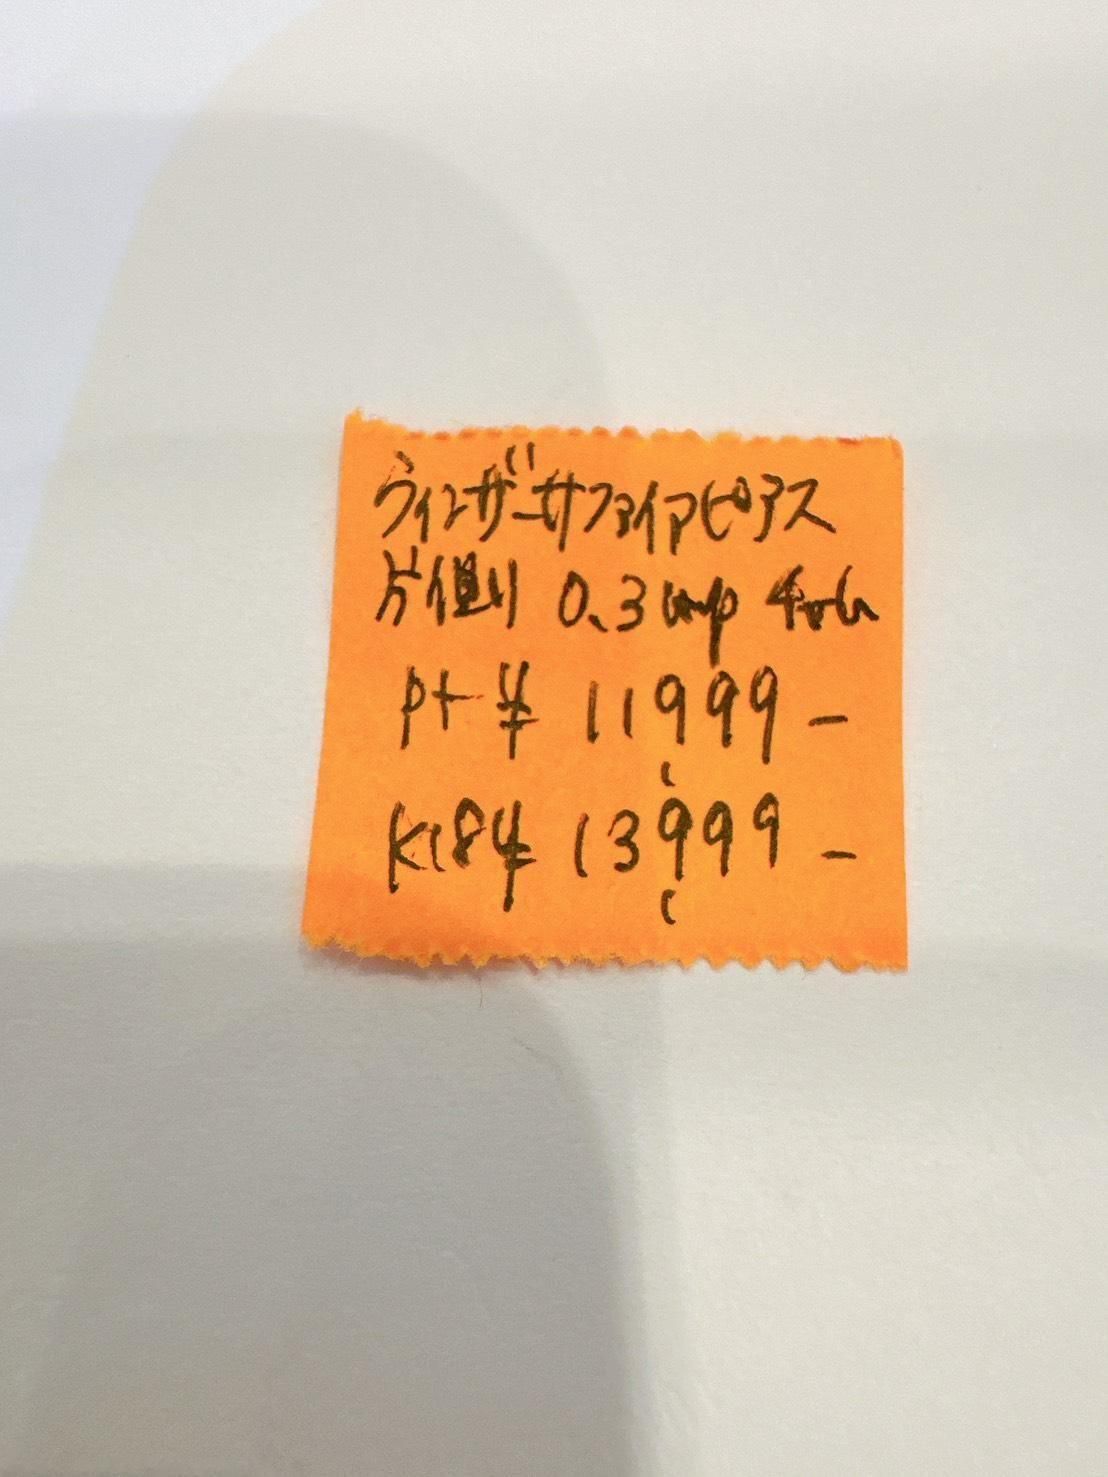 ウィンザーサファイアピアス
片側 0.3 up
Pt ¥ 11,999-
K18 ¥ 13,999-